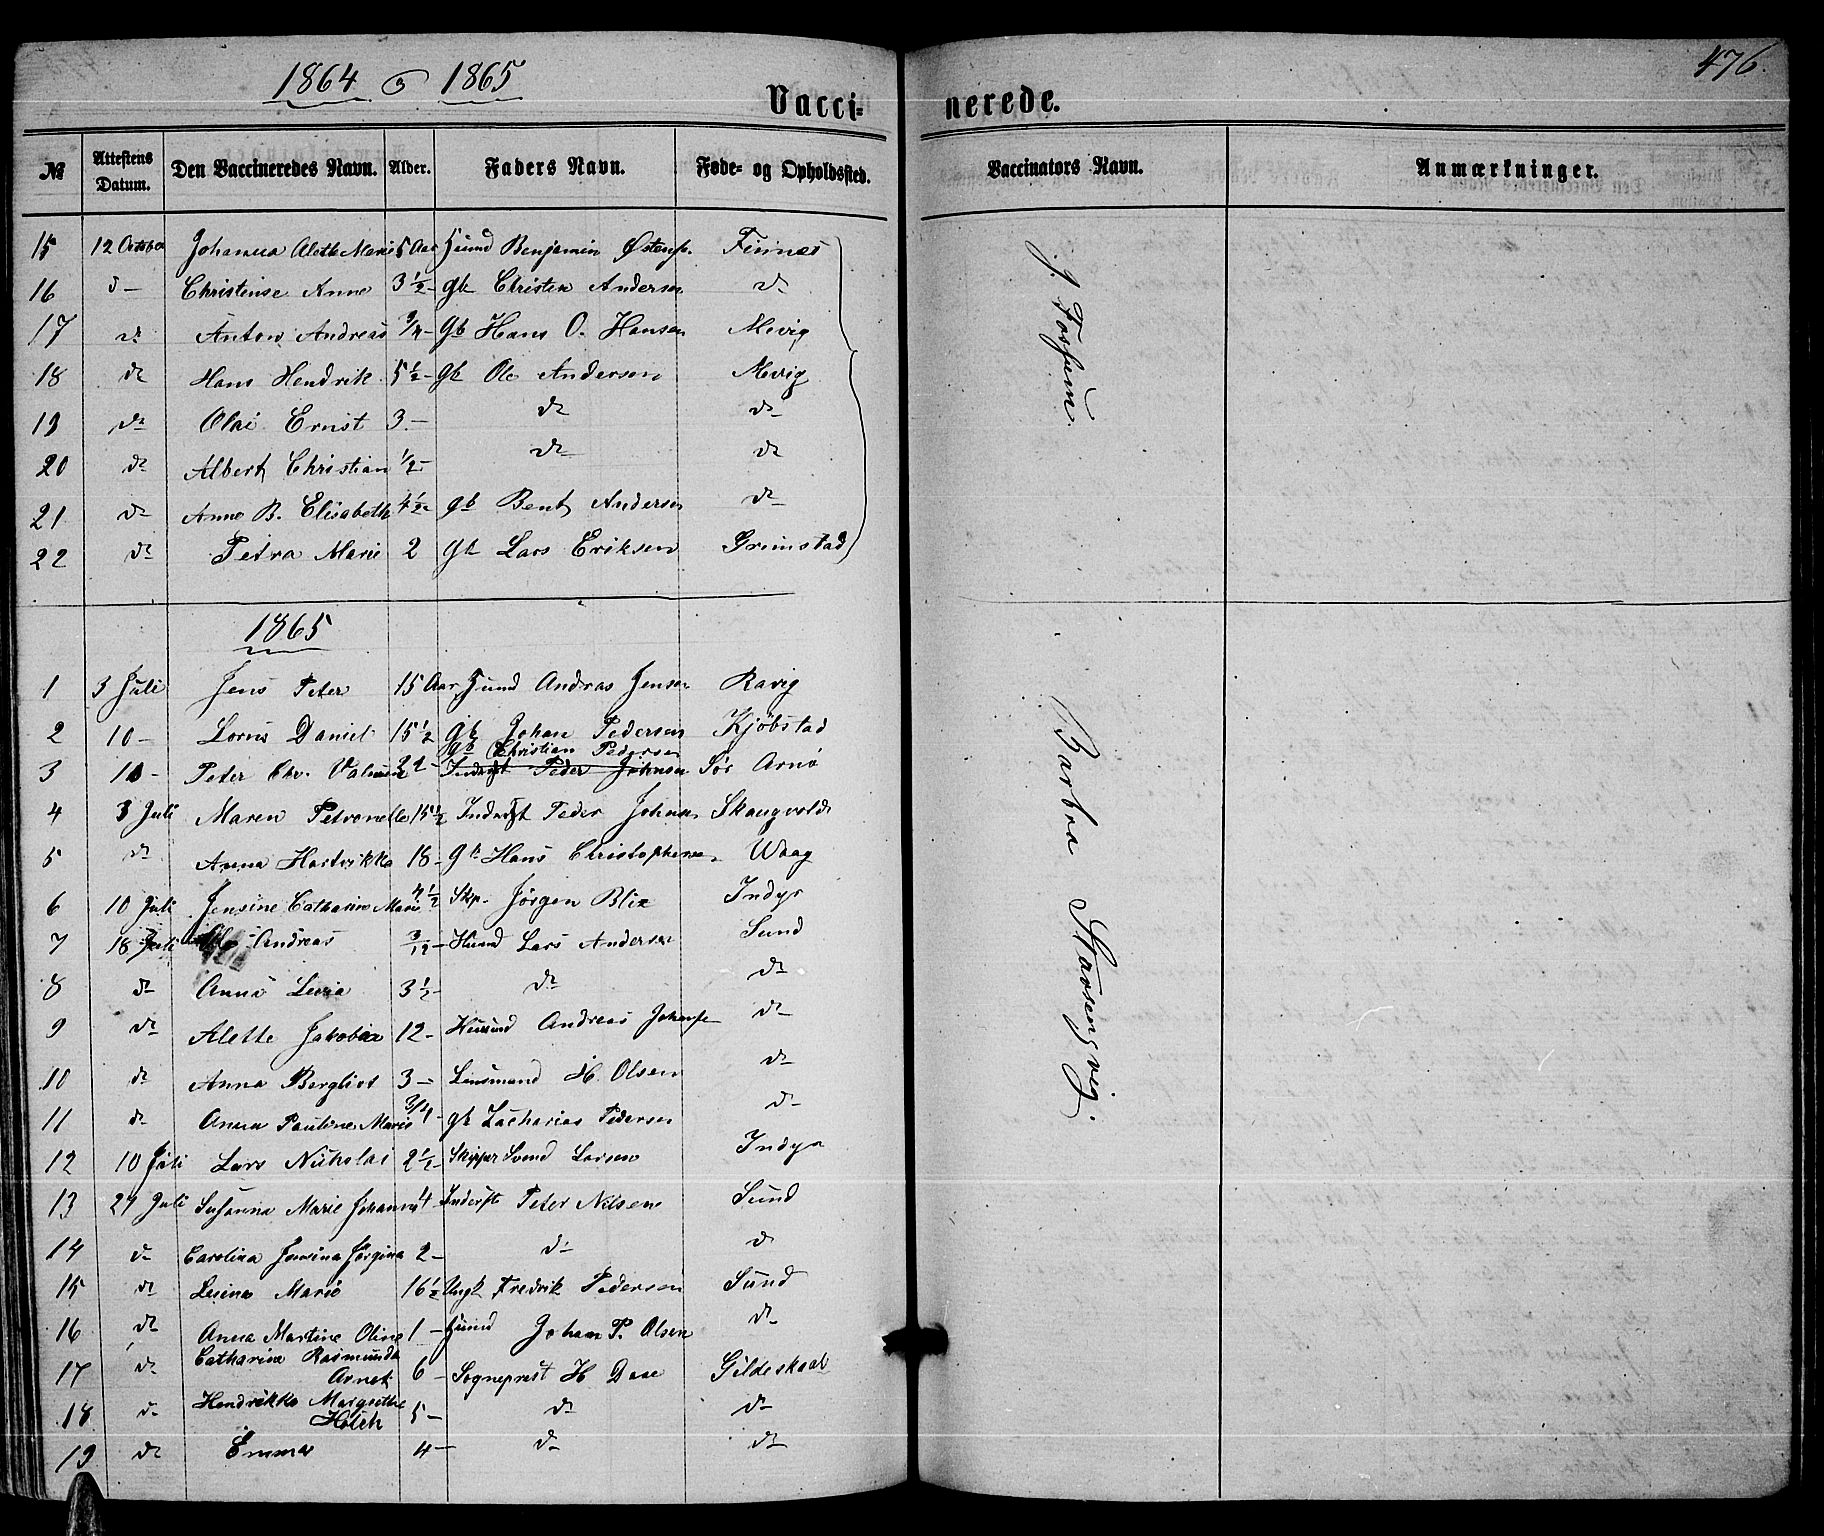 476.
1864 og 1865
Vaccinerede.
№ Attestens Datum. Den Vaccineredes Navn. Alder. Faders Navn. Føde- og Opholdssted. Vaccinators Navn. Anmærkninger.
15 12 October Johanna Alette Marie 5 Aar Benjamin Finnes
16 do Christense Anne 3 1/2 - gb Christen Andersen do
17 do Anton Andreas 3/4 - Gb Hans O. Hansen Mevig
18 do Hans Hendrik 5 1/2 - gb Ole Andersen Mevig
19 do Olai Ernst 3 - do do
20 do Albert Christian 1/2 - do do
21 do Anne B. Elisabeth 4 1/2 - gb Bent Andersen do
22 do Petra Marie 2 gb Lars Eriksen Grimstad
J. Fossum
1865
1 3 Juli Jens Peter 15 Aar Andras Jensen Ravig
2 10 - Daniel 15 1/2 gb Johan Pedersen Kjøbstad
gb Christian Pedersen
3 10 - Peter Chr. Peder Johnsen Sør Arnø
4 3 Juli Maren Petronelle 15 1/2 Inderst Peder Johnsen
5 do Anna Hartvikka 18 - gb Hans Christophersen Waag
6 10 Juli Jensine Catharine Marie 4 1/2 Skp. Jørgen Blix Indyr
7 18 Juli Andreas 3/12 - Husmd Lars Andersen Sund
8 do Anna 3 1/2 - do do
9 do Alette Jakobia 12 - Husmd Andreas Johans. do
10 do Anna Bergliot 3 - Lensmand H. Olsen do
11 do Anna Pauline Marie 3/4 - gb Zacharias Pedersen do
12 10 Juli Lars Nikolai 2 1/2 - Skipper Svend Larsen Indyr
13 27 Juli Susanna Marie 4 Inderst Peter Nilsen Sund
14 do Carolina Jensina Jørgina 2 - do do
15 do Marie 16 1/2 Ungk Fredrik Pedersen Sund
16 do Anna Martine Oline 1 - Johan P. Olsen do
17 do Catharina Rasmunda
6 - Sogneprest H Gildeskaal
18 do Hendrikke Margrethe
5 - do do
19 do Emma 4 - do do
Barbra